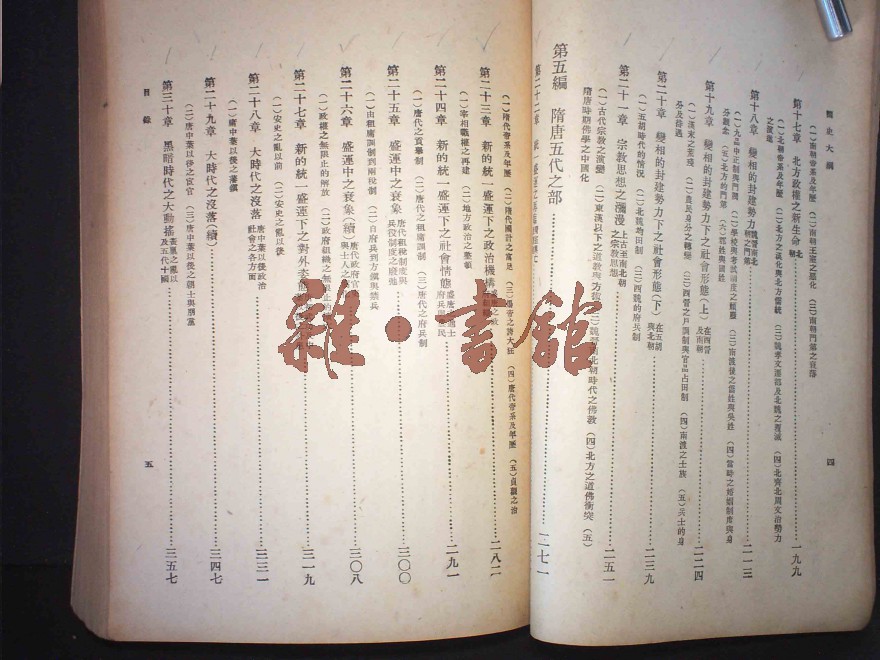 國史大綱
四
(一)南朝帝系及年歷 (二)南朝王室之惡化 (三)南朝門第之衰落
第十七章 北方政權之新生命 北朝 一九九
(一)北朝帝系及年歷 (二)北方之漢化與北方儒統 (三)魏孝文遷都及北魏之覆滅 (四)北齊北周文治勢力
之演進
第十八章 變相的封建勢力 魏晉南北朝之門第 二一三
(一)九品中正制與門閥 (二)學校與考試制度之頹廢 (三)南渡後之僑姓與吳姓 (四)當時之婚姻制度與身
分觀念 (五)北方的門第 (六)郡姓與國姓
第十九章 變相的封建勢力下之社會形態(上) 在西晉及南朝 二二四
(一)漢末之荒殘 (二)農民身分之轉變 (三)西晉之戶調制與官品占田制 (四)南渡之士族 (五)兵士的身
分及待遇
第二十章 變相的封建勢力下之社會形態(下) 在五胡與北朝 二三九
(一)五胡時代的情況 (二)北魏均田制 (三)西魏的府兵制
第二十一章 宗教思想之瀰漫 上古至南北朝之宗教思想 二五一
(一)古代宗教之演變 (二)東漢以下之道教與方術 (三)魏晉南北朝時代之佛教 (四)北方之道佛衝突 (五)
隋唐時期佛學之中國化
第五編 隋唐五代之部 二七一
第二十二章
(一)隋代帝系及年歷 (二)隋代國計之富足 (三)煬帝之誇大狂 (四)唐代帝系及年歷 (五)貞觀之治
第二十三章 新的統一盛運下之政治機構 二八二
(一)宰相職權之再建 (二)地方政治之整頓
第二十四章 新的統一盛運下之社會情態 二九一
(一)唐代之貢舉制 (二)唐代之租庸調制 (三)唐代之府兵制
第二十五章 盛運中之衰象 唐代租稅制度與兵役制度之廢弛 三〇〇
(一)由租庸調制到兩稅制 (二)自府兵到方鎮與禁兵
第二十六章 盛運中之衰象(續) 三〇八
(一)政權之無限止的解放 (二)政府組織之無限止的
第二十七章 新的統一盛運下之對外姿態 三一九
(一)安史之亂以前 (二)安史之亂以後
第二十八章 大時代之沒落 唐中葉以後政治社會之各方面 三三一
(一)唐中葉以後之藩鎮
第二十九章 大時代之沒落(續) 三四七
(二)唐中葉以後之宦官 (三)唐中葉以後之朝士與朋黨
第三十章 黑暗時代之大動搖 黃巢之亂以及五代十國 三五七
目錄
五
雜·書館